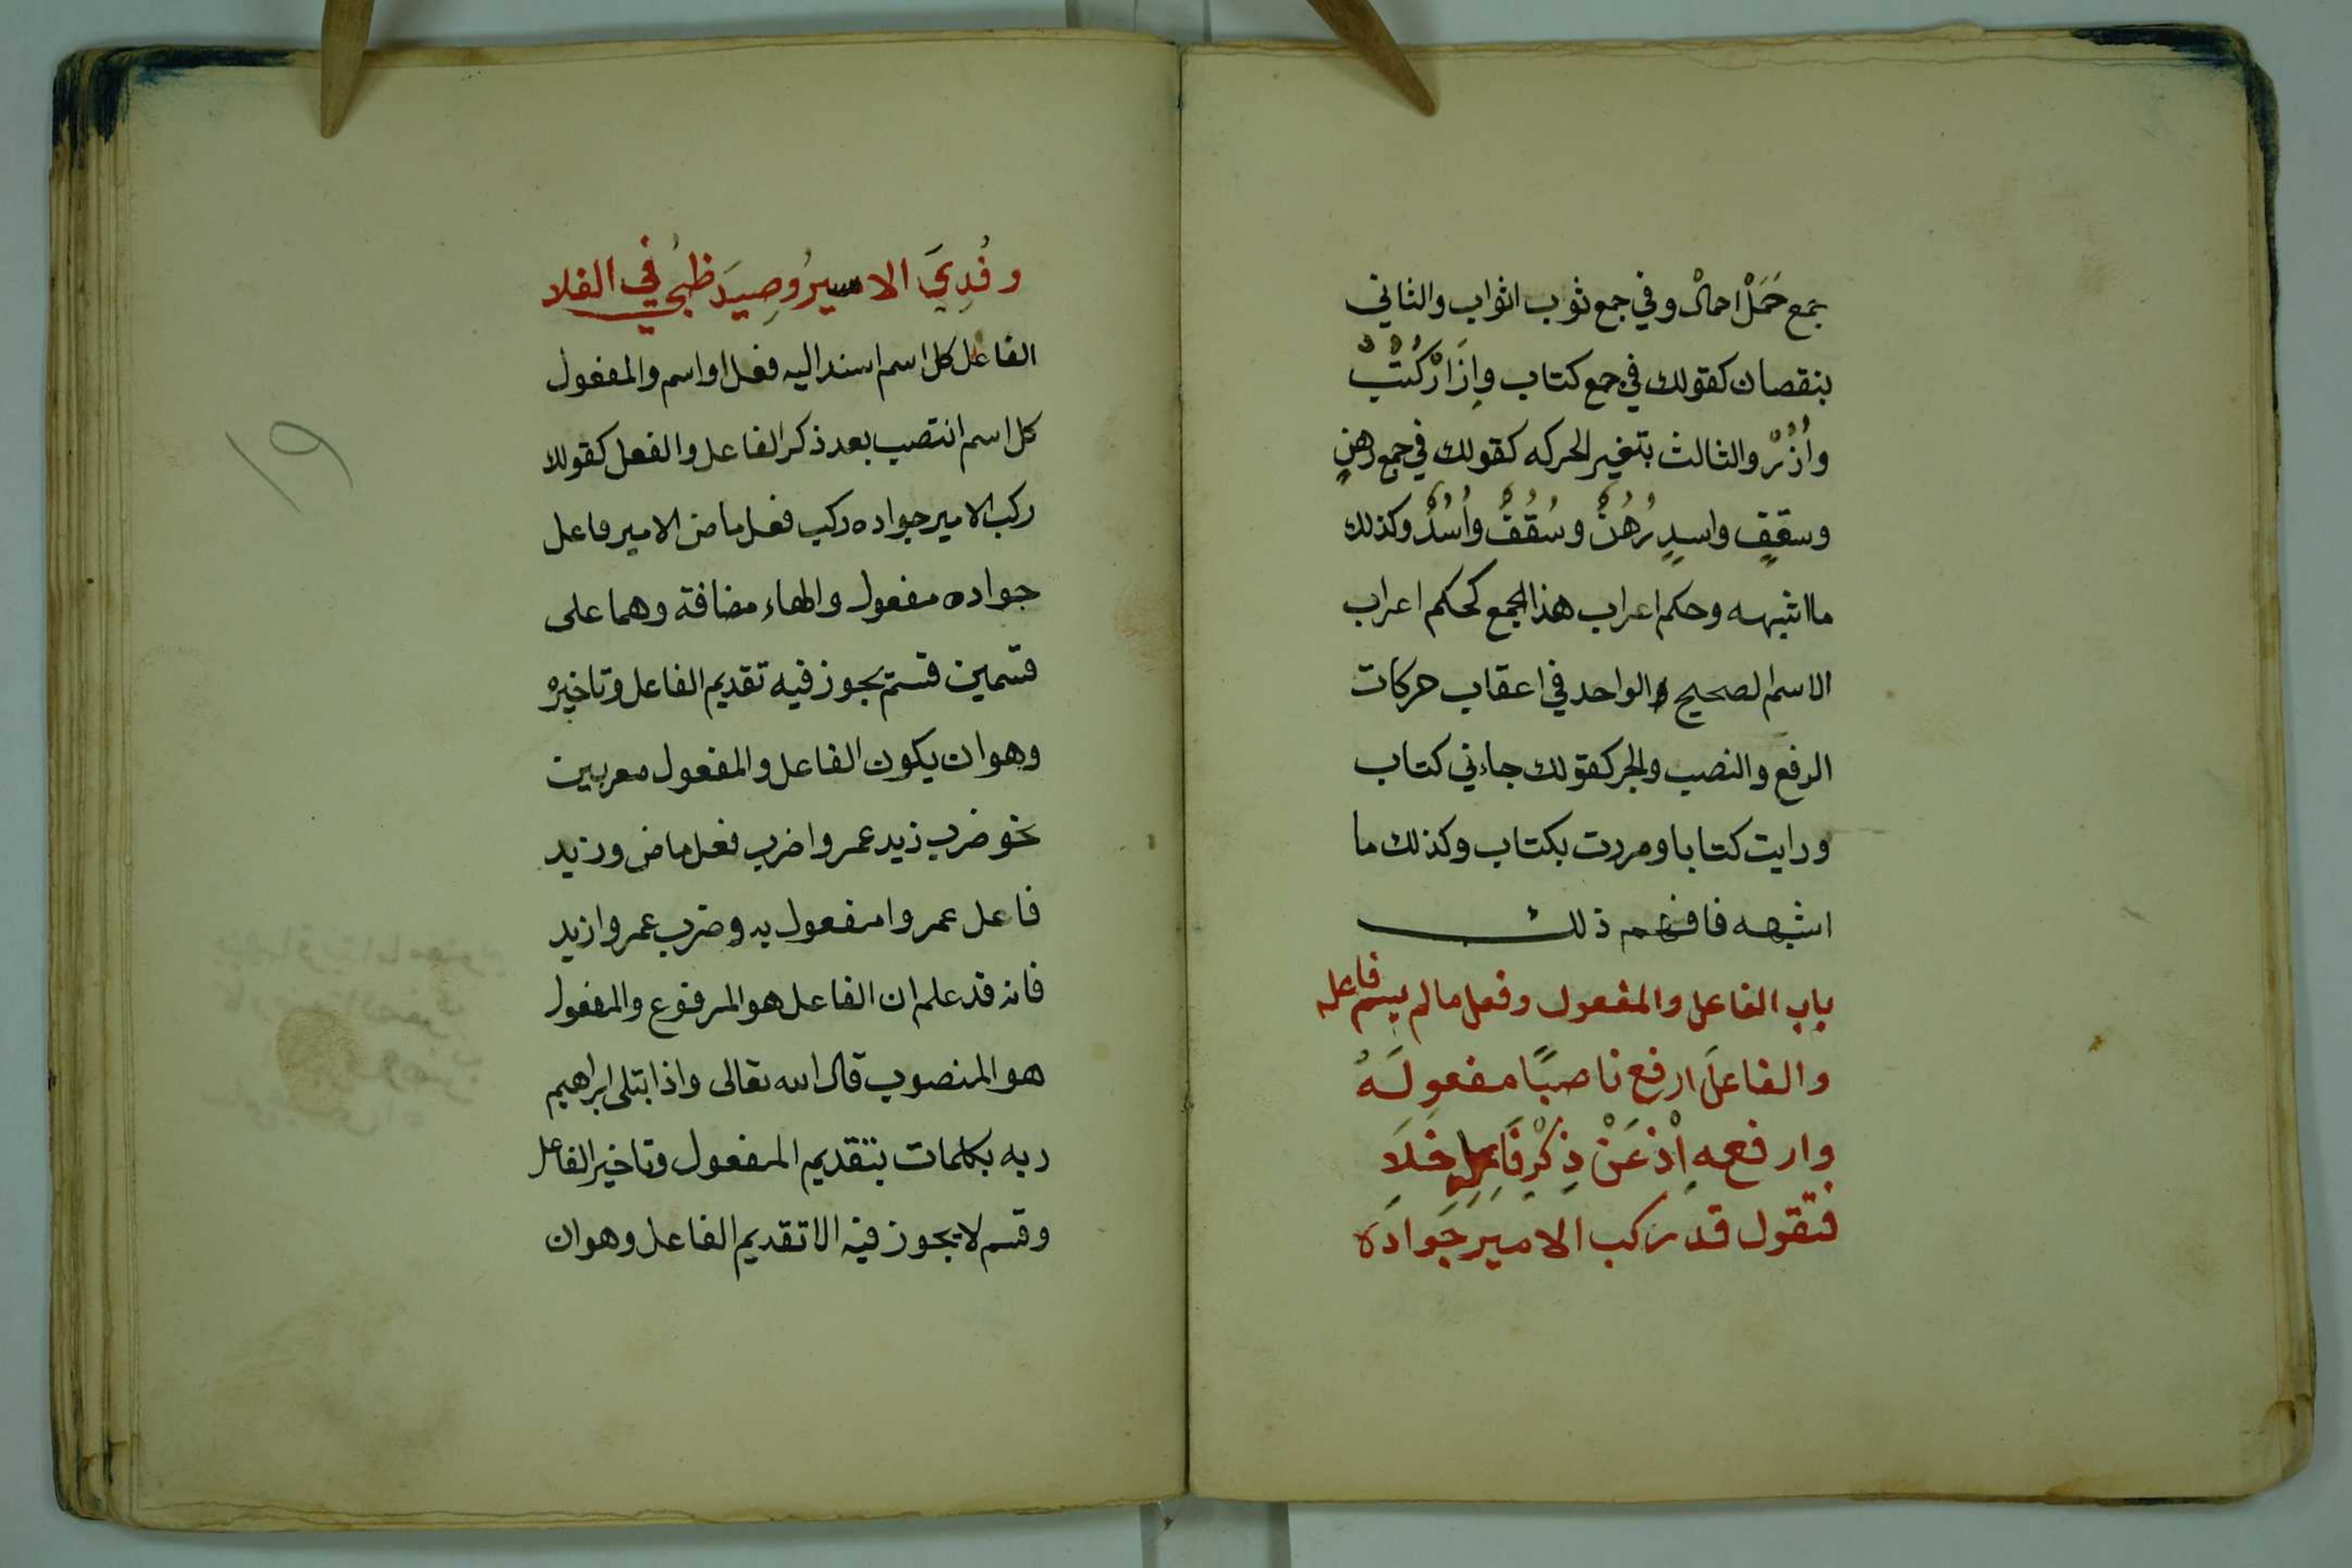 جمع حَمَلْ احمالْ وفي جمع ثوب اثواب والثاني
بنقصان كقولك في جمع كتاب وإِزَارْ كُتُبْ
وأُزُرْ والثالث بتغير الحركه كقولك في جمع رهنٍ
وسقفٍ واسدٍ رُهُنٌ وسُقُفٌ وأُسُدٌ وكذلك
ما اشبهه وحكم اعراب هذا الجمع كحكم اعراب
الاسم الصحيح والواحد في اعقاب حركات
الرفع والنصب والجر كقولك جاءني كتاب
ورايت كتابا ومررت بكتاب وكذلك ما
اشبهه فافهم ذلك
باب الفاعل والمفعول وفعل ما لم يسم فاعله
والفاعلَ ارفع ناصبًا مفعولَهُ
وارفعه اِذْ عَنْ ذِكْرِ فَاعِلِهِ خَلَا
فتقول قد ركب الاميرُ جَوادَه
وفُدِيَ الاسيرُ وصِيدَ ظبيُ في الفلا
الفاعل كل اسم اسند اليه فعل او اسم والمفعول
كل اسم انتصب بعد ذكر الفاعل والفعل كقولك
ركب الامير جواده ركب فعل ماض الامير فاعل
جواده مفعول والهاء مضافة وهما على
قسمين قسمٌ يجوز فيه تقديم الفاعل وتاخيره
وهو ان يكون الفاعل والمفعول معربين
نحو ضرب زيد عمروا ضرب فعل ماض وزيد
فاعل عمروا مفعول به وضرب عمروا زيد
فانه قد علم ان الفاعل هو المرفوع والمفعول
هو المنصوب قال الله تعالى واذ ابتلى ابراهيم
ربه بكلمات بتقديم المفعول وتاخير الفاعل
وقسم لا يجوز فيه الا تقديم الفاعل وهو ان